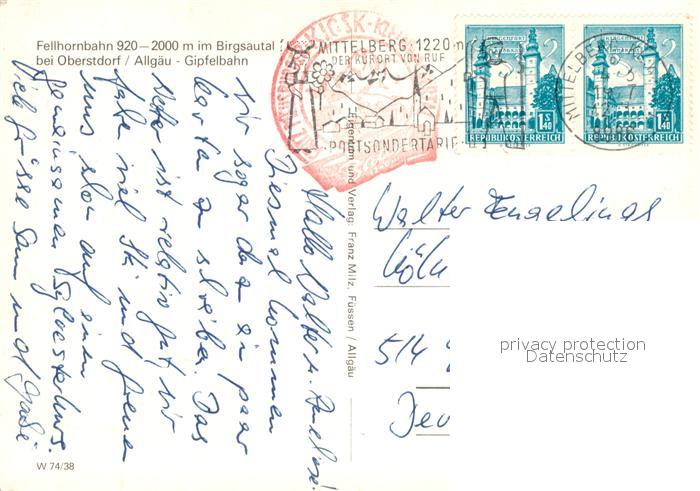 Fellhornbahn 920—2000 m im Birgsautal
bei Oberstdorf / Allgäu - Gipfelbahn
MITTELBERG 1220 m
DER KURORT VON RUF
POSTSONDERTARIF
MITTELBERG, KLW
S 1.40
REPUBLIK ÖSTERREICH
S 1.40
REPUBLIK ÖSTERREICH
Hallo Walter u.
Diesmal kommen
wir sogar dazu ein paar
Karten z. schreiben. Das
Wetter ist relativ gut, wir
fahren viel Ski und freuen
uns schon auf einen
gemeinsamen
Viele Grüsse Sam und
Eigentum und Verlag: Franz Milz, Füssen / Allgäu
Walter
Köln
514
Deu
privacy protection
Datenschutz
W 74/38